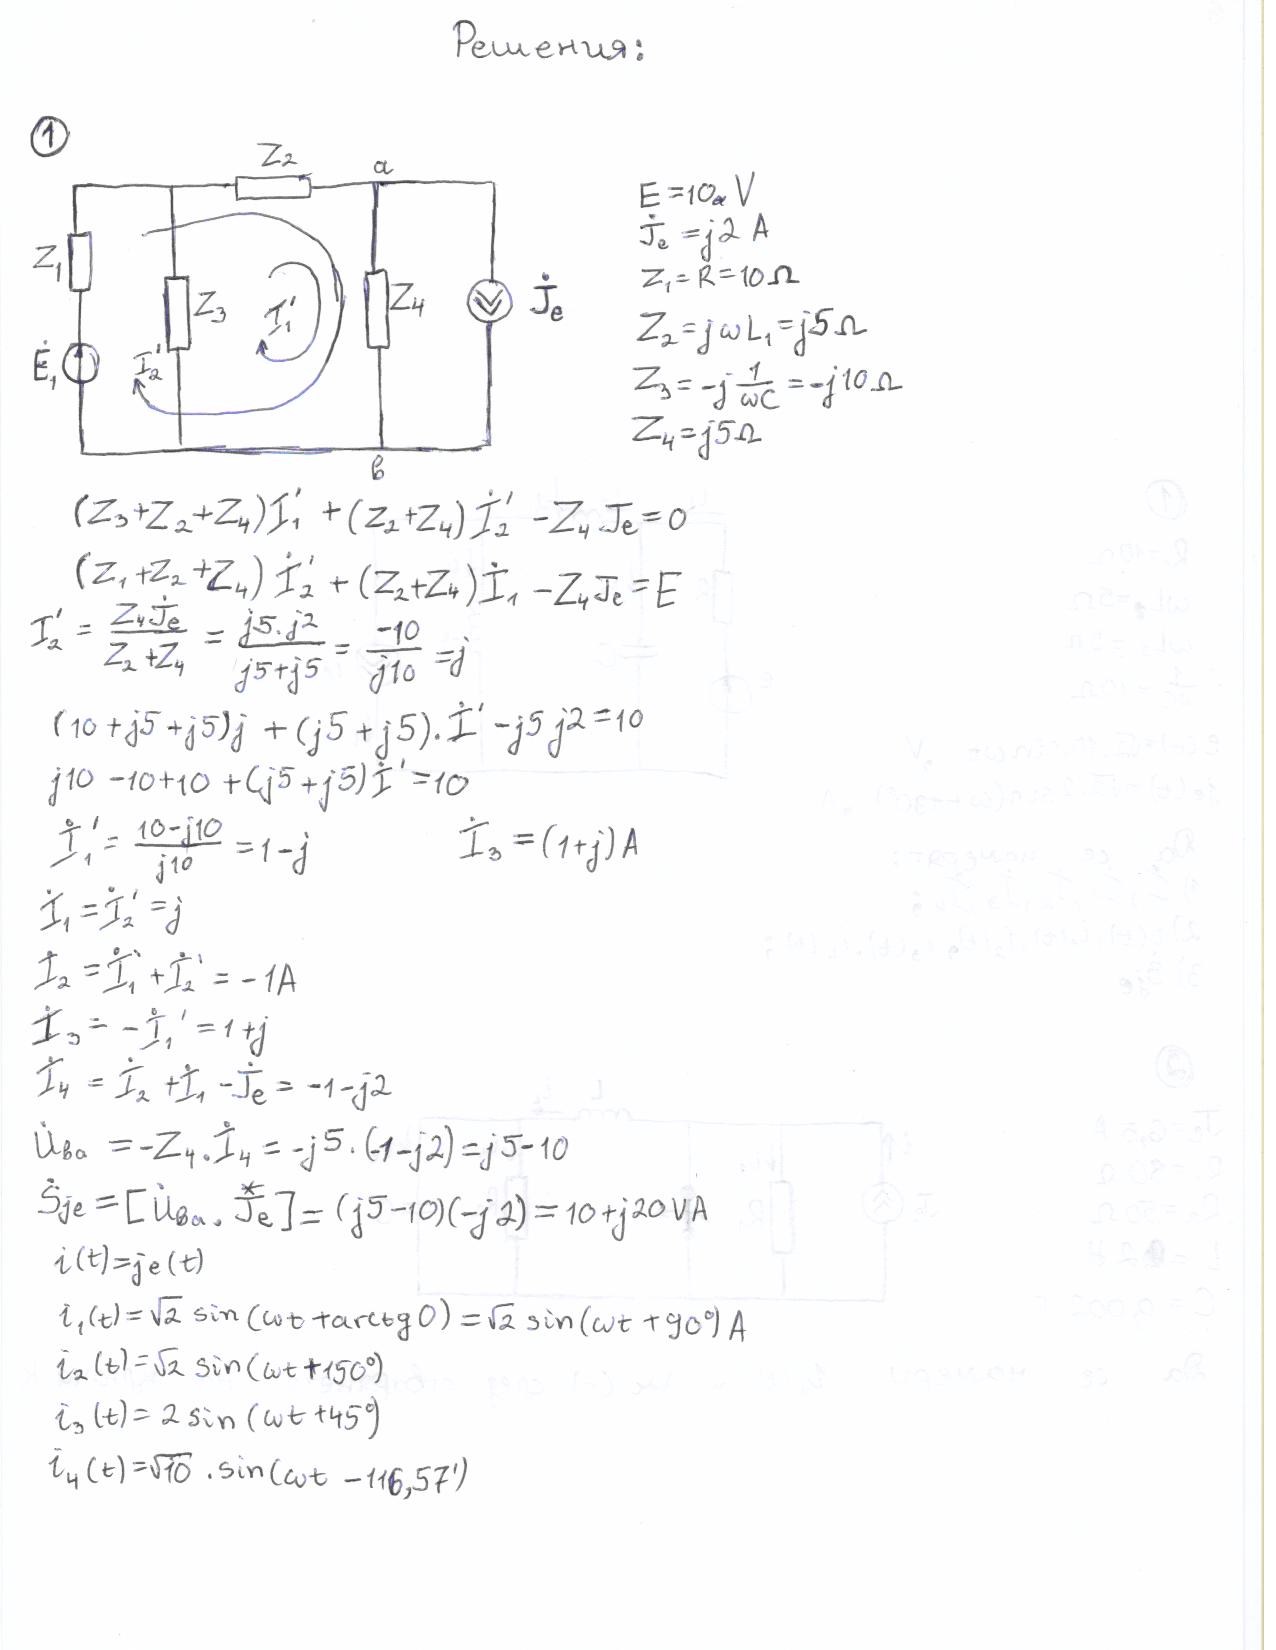 Решения:
①
Z₂
a
Z₁
Z₃
İ₁'
Z₄
J̇e
Ė₁
İ₂'
в
E = 10 V
J̇e = j2 A
Z₁ = R = 10 Ω
Z₂ = jωL₁ = j5 Ω
Z₃ = -j 1/ωC = -j10 Ω
Z₄ = j5 Ω
(Z₃+Z₂+Z₄)İ₁' + (Z₂+Z₄)İ₂' - Z₄J̇e = 0
(Z₁+Z₂+Z₄)İ₂' + (Z₂+Z₄)İ₁ - Z₄Je = E
I₂' = Z₄J̇e / Z₂+Z₄ = j5.j2 / j5+j5 = -10 / j10 = j
(10+j5+j5)j + (j5+j5).İ' - j5 j2 = 10
j10 - 10 + 10 + (j5+j5)İ' = 10
İ₁' = 10-j10 / j10 = 1-j İ₃ = (1+j) A
İ₁ = İ₂' = j
İ₂ = İ₁' + İ₂' = -1A
İ₃ = -İ₁' = 1+j
İ₄ = İ₂ + İ₁ - J̇e = -1-j2
U̇ва = -Z₄.İ₄ = -j5.(-1-j2) = j5-10
Ṡje = [U̇ва.J̇*e] = (j5-10)(-j2) = 10+j20 VA
i(t) = je(t)
i₁(t) = √2 sin(ωt + arctg 0) = √2 sin(ωt + 90°) A
i₂(t) = √2 sin(ωt + 150°)
i₃(t) = 2 sin(ωt + 45°)
i₄(t) = √10 . sin(ωt - 116,57')